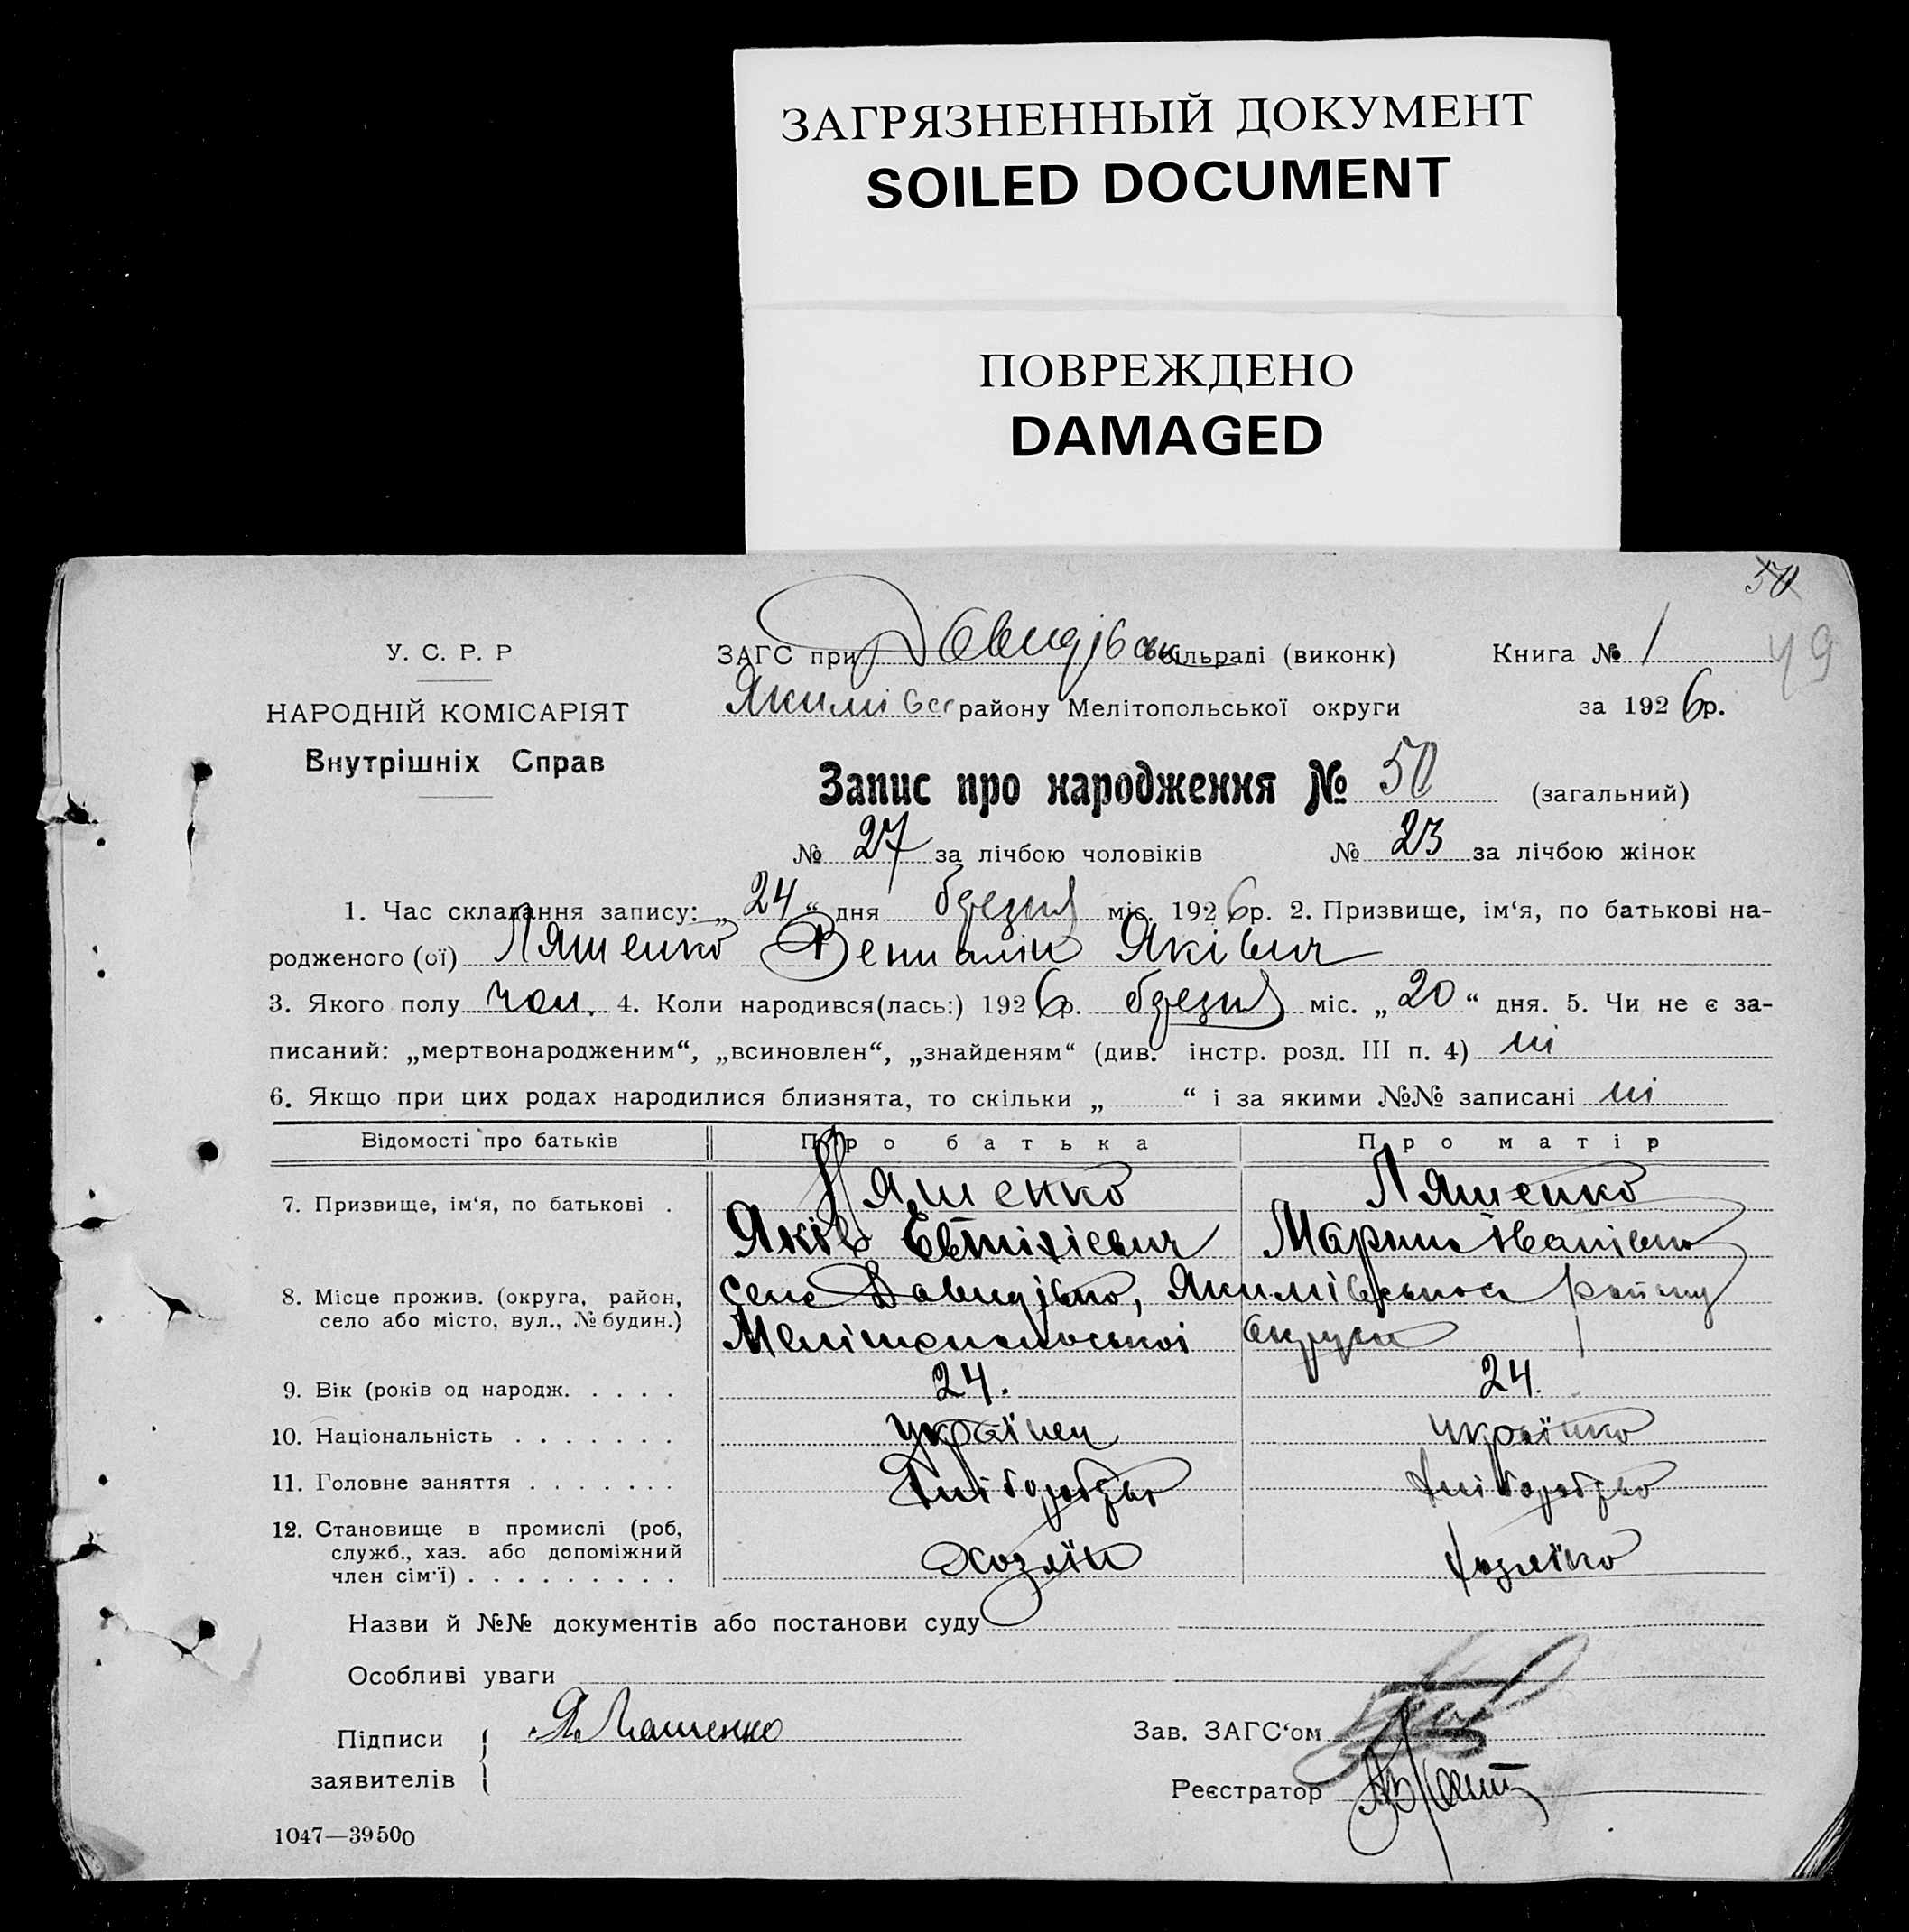 ЗАГРЯЗНЕННЫЙ ДОКУМЕНТ
SOILED DOCUMENT
ПОВРЕЖДЕНО
DAMAGED
50
У. С. Р. Р
НАРОДНІЙ КОМІСАРІЯТ
Внутрішніх Справ
ЗАГС при Давидівськ сільраді (виконк) Книга № 1
49
Якимівсь району Мелітопольської округи за 1926р.
Запис про народження № 50 (загальний)
№ 27 за лічбою чоловіків № 23 за лічбою жінок
1. Час складання запису: „24“ дня березня міс. 1926р. 2. Призвище, ім‘я, по батькові на-
родженого (ої) Ляшенко Вениамін Яківич
3. Якого полу чол. 4. Коли народився(лась:) 1926р. березня міс. „20“ дня. 5. Чи не є за-
писаний: „мертвонародженим“, „всиновлен“, „знайденям“ (див. інстр. розд. III п. 4) ні
6. Якщо при цих родах народилися близнята, то скільки „ “ і за якими №№ записані ні
Відомості про батьків Про батька Про матір
7. Призвище, ім‘я, по батькові . Ляшенко Ляшенко
Яків Євтіхієвич Марина Іванівна
8. Місце прожив. (округа, район, село Давидівка, Якимівського району
село або місто, вул., № будин.) Мелітопольської округи
9. Вік (років од народж. . . . . 24. 24.
10. Національність . . . . . . . українец українка
11. Головне заняття . . . . . . . хліборобство хліборобство
12. Становище в промислі (роб,
служб., хаз. або допоміжний хозяїн хозяїка
член сім‘ї) . . . . . . . . .
Назви й №№ документів або постанови суду
Особливі уваги
Підписи Я. Ляшенко Зав. ЗАГС‘ом
заявителів Реєстратор
1047—39500